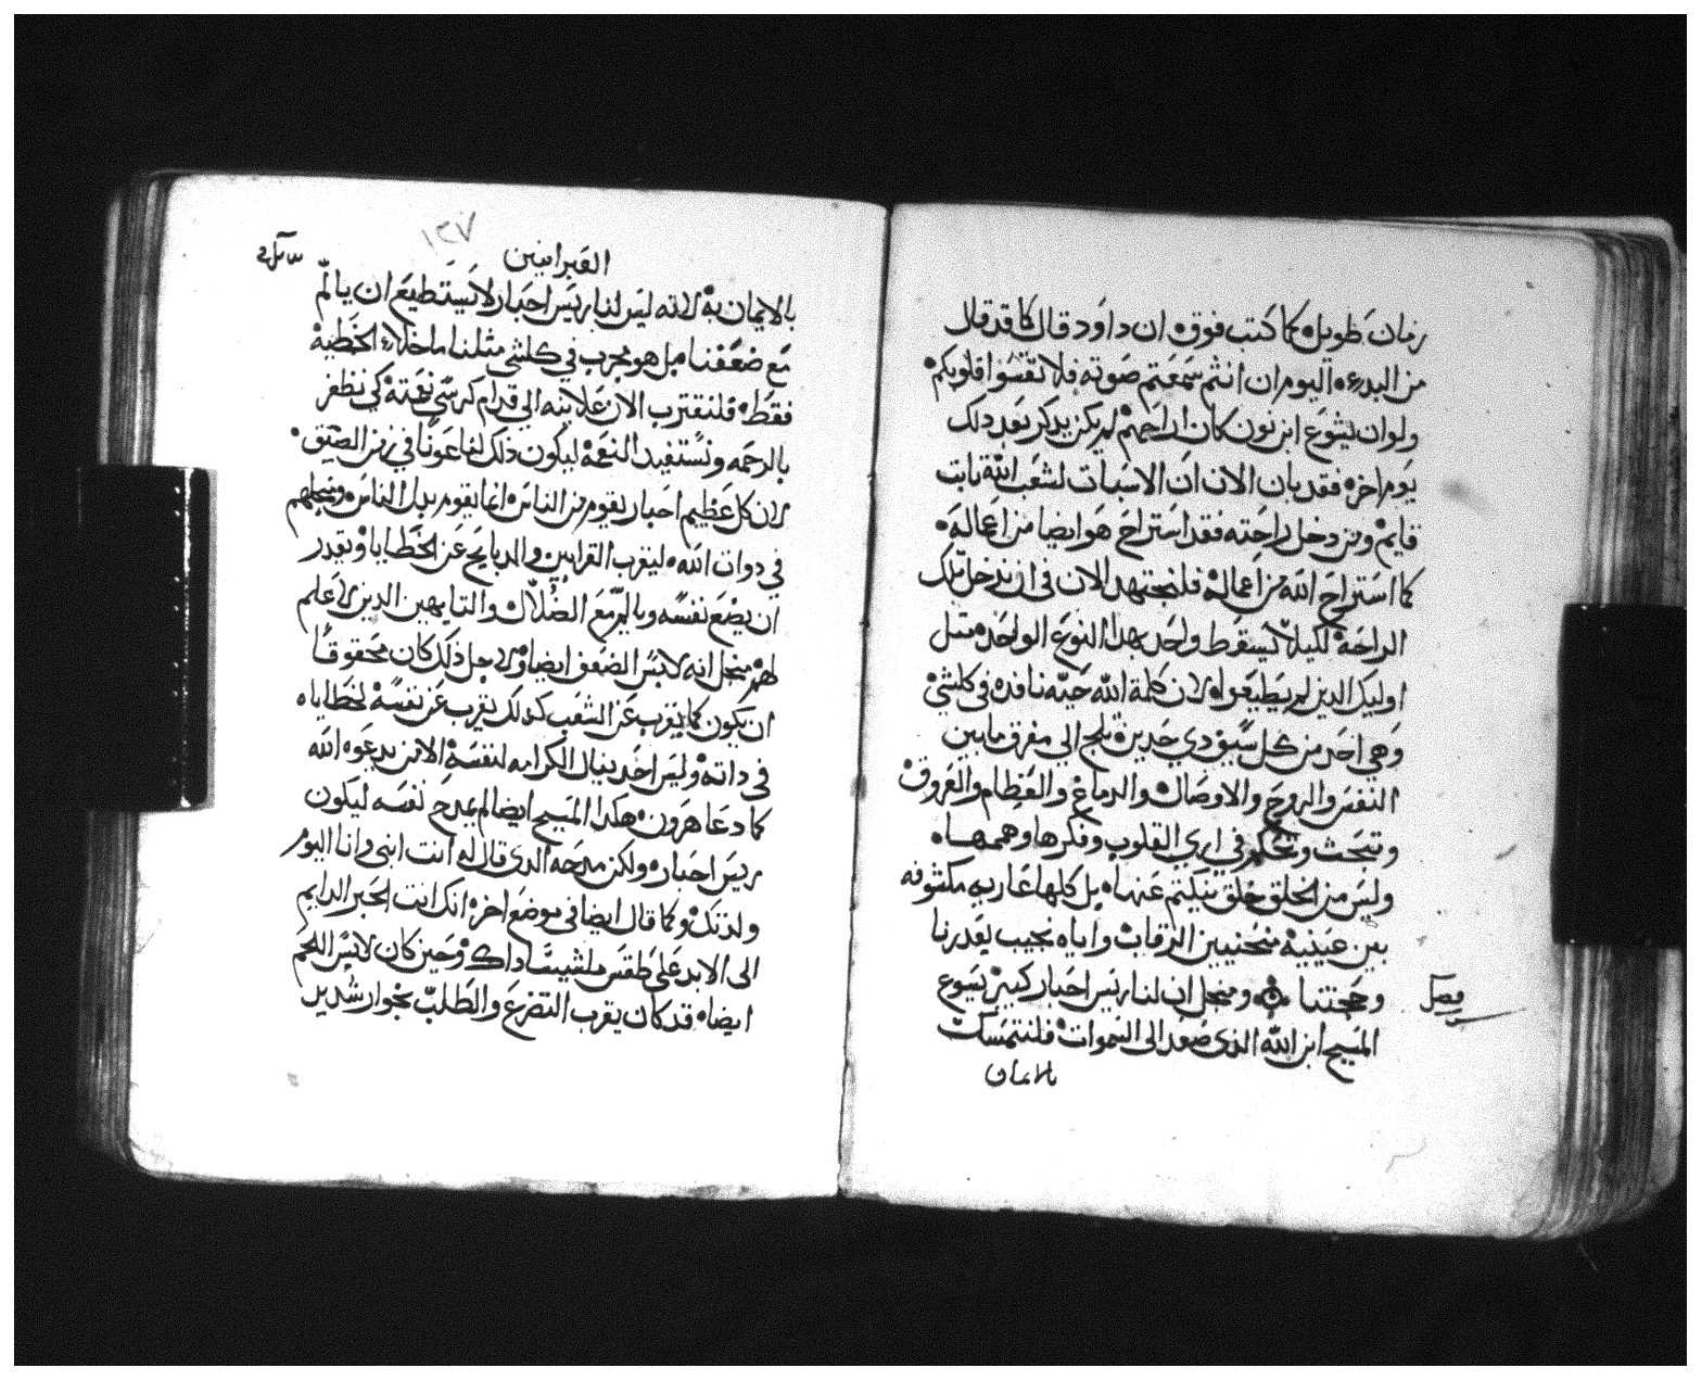 زمان طويل كما كتب فوق ان داود قال كما قد قال
من البدء اليوم ان انتم سمعتم صوته فلا تقسوا قلوبكم
ولوان يشوع ابن نون كان اراحهم لم يكن يذكر بعد دلك
يوم اخر فقد بان الان ان الاسبات لشعب الله ثابت
قايم ومن دخل راحته فقد استراح هو ايضا من اعماله
كما استراح الله من اعماله فلنجتهد الان في ان ندخل تلك
الراحة لكيلا يسقط واحد بهدا النوع الواحد مثل
اوليك الدين لم يطيعوا لان كلمة الله حيه نافده في كلشي
وهي احد من كل سيف دي حدين تلج الى مفرق ما بين
النفس والروح والاوصال والدماغ والعظام والعروق
وتبحث وتحكم في اري القلوب وفكرها وهممها
وليس من الخلق خلق ينكتم عنها بل كلها عاريه مكشوفه
بين عينيه منحنيين الرقاب واياه نجيب بعدرنا
وحجتنا ومنجل ان لنا ريس احبار كبير يسوع
فصل
المسيح ابن الله الدى صعد الى السموات فلنتمسك
بالايمان
١٢٧
العبرانيين
بالايمان به لانه ليس لنا ريس احبار لا يستطيع ان يالم
مع ضعفنا بل هو مجرب في كلشي مثلنا ما خلاء الخطيه
فقط فلنقترب الان علانيه الي قدام كرسي نعمته كي نظفر
بالرحمه ونستفيد النعمة ليكون ذلك لنا عونا في زمن الضيق
لان كل عظيم احبار يقوم من الناس انما يقوم بدل الناس ومنجلهم
في دوات الله ليقرب القرابين والدبايح عن الخطايا ويقدر
ان يضع نفسه ويالم مع الضلال والتايهين الدين لا علم
لهم منجل انه لابس الضعف ايضا ولاجل ذلك كان محقوقا
ان يكون كما يقرب عن الشعب كدلك يقرب عن نفسه لخطاياه
في داته وليس احد ينال الكرامه لنفسه الا من يدعوه الله
كما دعا هرون هكدا المسيح ايضا لم يمدح نفسه ليكون
ريس احبار ولكن مدحه الدى قال له انت ابنى وانا اليوم
ولدتك وكما قال ايضا فى موضع اخر انك انت الحبر الدايم
الى الابد على طقس ملشيساداك وحين كان لابس اللحم
ايضا قد كان يقرب التضرع والطلب بجوار شديد